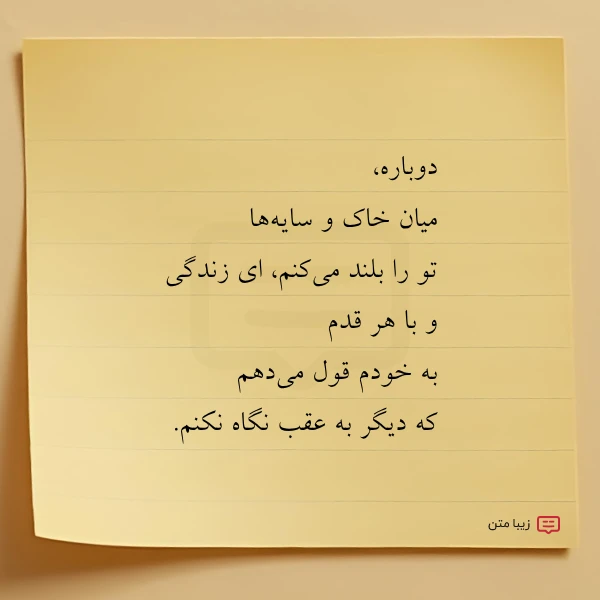 دوباره،
میان خاک و سایه‌ها
تو را بلند می‌کنم، ای زندگی
و با هر قدم
به خودم قول می‌دهم
که دیگر به عقب نگاه نکنم.
زیبا متن